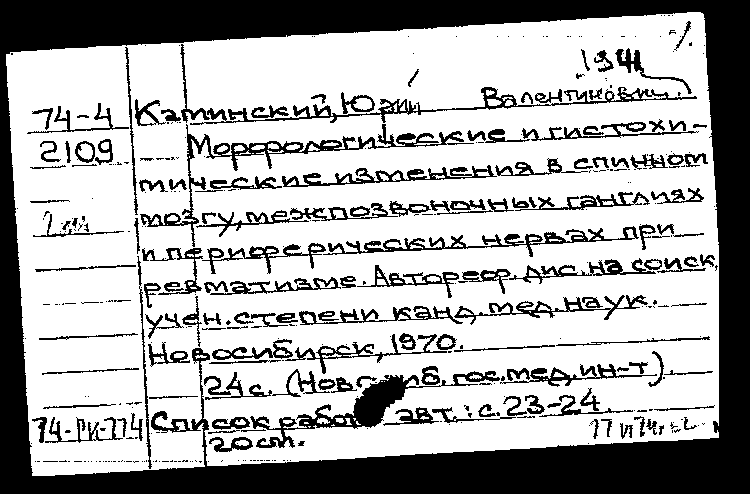 1941
74-4 Каминский, Юрий Валентинович.
2109 Морфологические и гистохи-
мические изменения в спинном
мозгу, межпозвоночных ганглиях
и периферических нервах при
ревматизме. Автореф. дис. на соиск.
учен. степени канд. мед. наук.
Новосибирск, 1970.
24 с. (Новосиб. гос. мед. ин-т).
74-РК-774 Список работ авт.: с. 23-24.
20 cm.